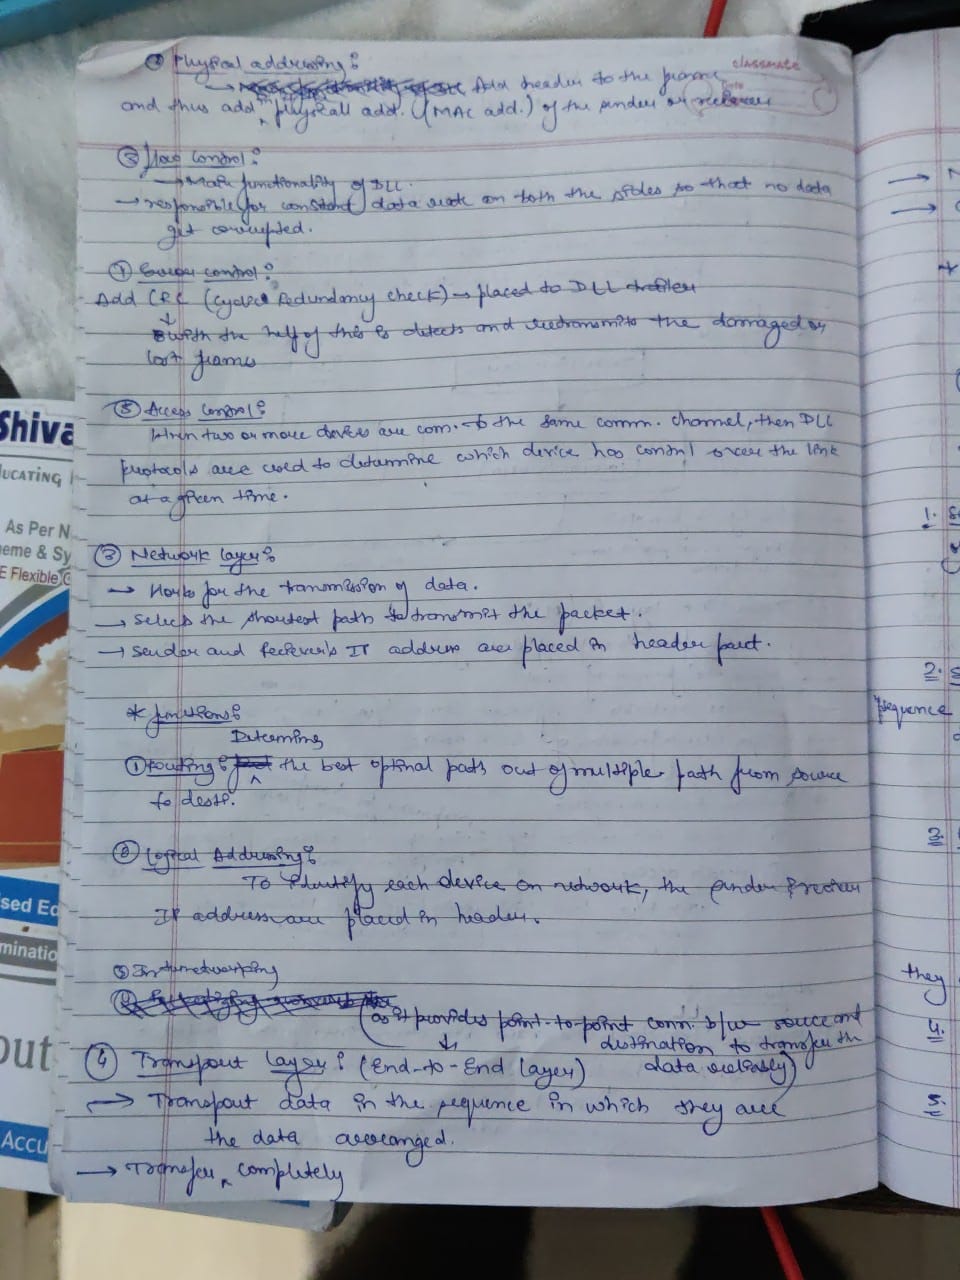 ② Physical addressing :
classmate
→ Add header to the frame
Date
and thus add physicall add. (MAC add.) of the sender or reciever
③ Flow Control :
→ Main functionality of DLL.
→ responsible for constant data rate on both the sides so that no data
get corrupted.
④ Error control :
Add CRC (Cyclic Redundancy check) → placed to DLL trailer
↓
with the help of this is detects and retransmits the damaged or
lost frames
⑤ Access Control :
When two or more devices are com. to the same comm. channel, then DLL
protocols are used to determine which device has control over the link
at a given time.
③ Network layer :
→ Works for the transmission of data.
→ Selects the shortest path to transmit the packet.
→ Sender and Reciever's IP address are placed in header part.
* functions :
Determines
① routing : the best optimal path out of multiple path from source
to destn.
② Logical Addressing :
To identify each device on network, the sender & reciever
IP address are placed in header.
③ Internetworking
(as it provides point-to-point conn. b/w source and
destination to transfer the
④ Transport layer : (End-to-End layer) data reliably)
→ Transport data in the sequence in which they are
the data arranged.
→ Transfer completely
Shiva
As Per N
eme & Sy
E Flexible
sed Ed
minatio
out
Accu
1.
2.
sequence
3.
they
4.
5.